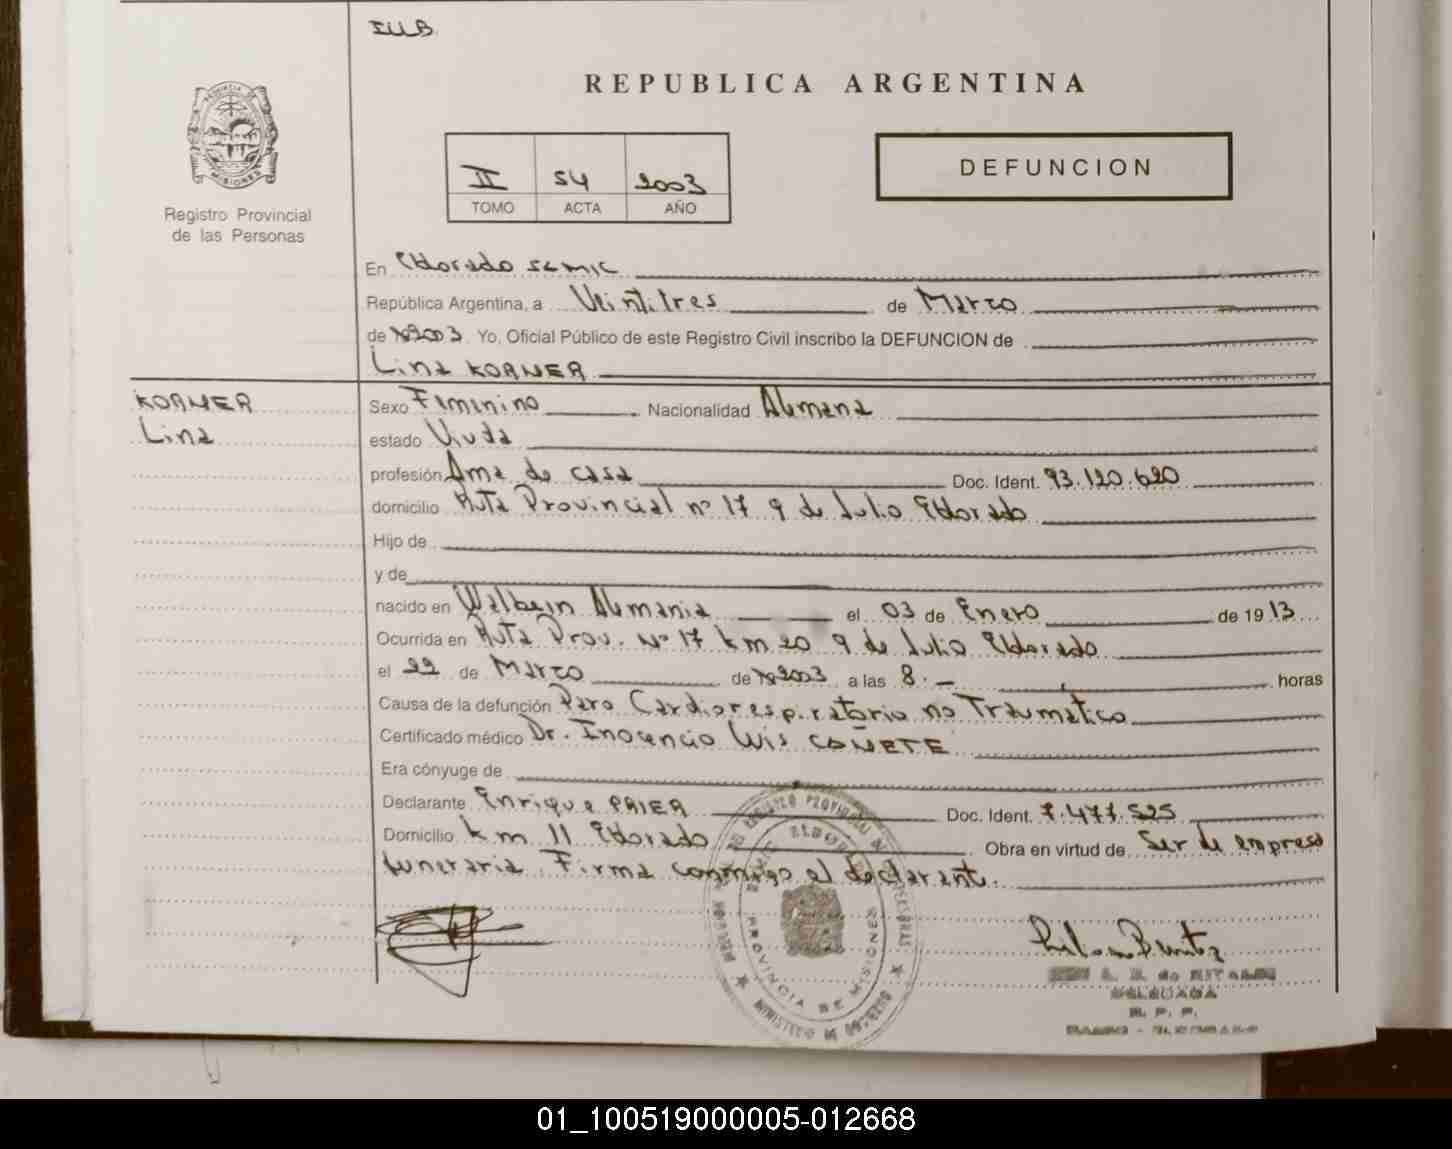 REPUBLICA ARGENTINA
PROVINCIA DE
MISIONES
Registro Provincial
de las Personas
II 54 2003
TOMO ACTA AÑO
DEFUNCION
En Eldorado SEMIC
República Argentina, a Veintitres de Marzo
de 2003 Yo, Oficial Público de este Registro Civil inscribo la DEFUNCION de
Lina KORNER
KORNER
Lina
Sexo Feminino Nacionalidad Alemana
estado Viuda
profesión Ama de casa Doc. Ident. 93.120.620
domicilio Ruta Provincial nº 17 9 de Julio Eldorado
Hijo de
y de
nacido en Alemania el 03 de Enero de 1913
Ocurrida en Ruta Prov. Nº 17 km 20 9 de Julio Eldorado
el 22 de Marzo de 2003 a las 8.- horas
Causa de la defunción Paro Cardiorespiratorio no Traumatico
Certificado médico Dr. Inocencio Luis CAÑETE
Era cónyuge de
Declarante Enrique PRIER Doc. Ident. 7.477.525
Domicilio km 11 Eldorado Obra en virtud de Ser de empresa
funeraria. Firma conmigo el declarante.
PROVINCIA DE MISIONES
DELEGADA
R. P. P.
01_100519000005-012668